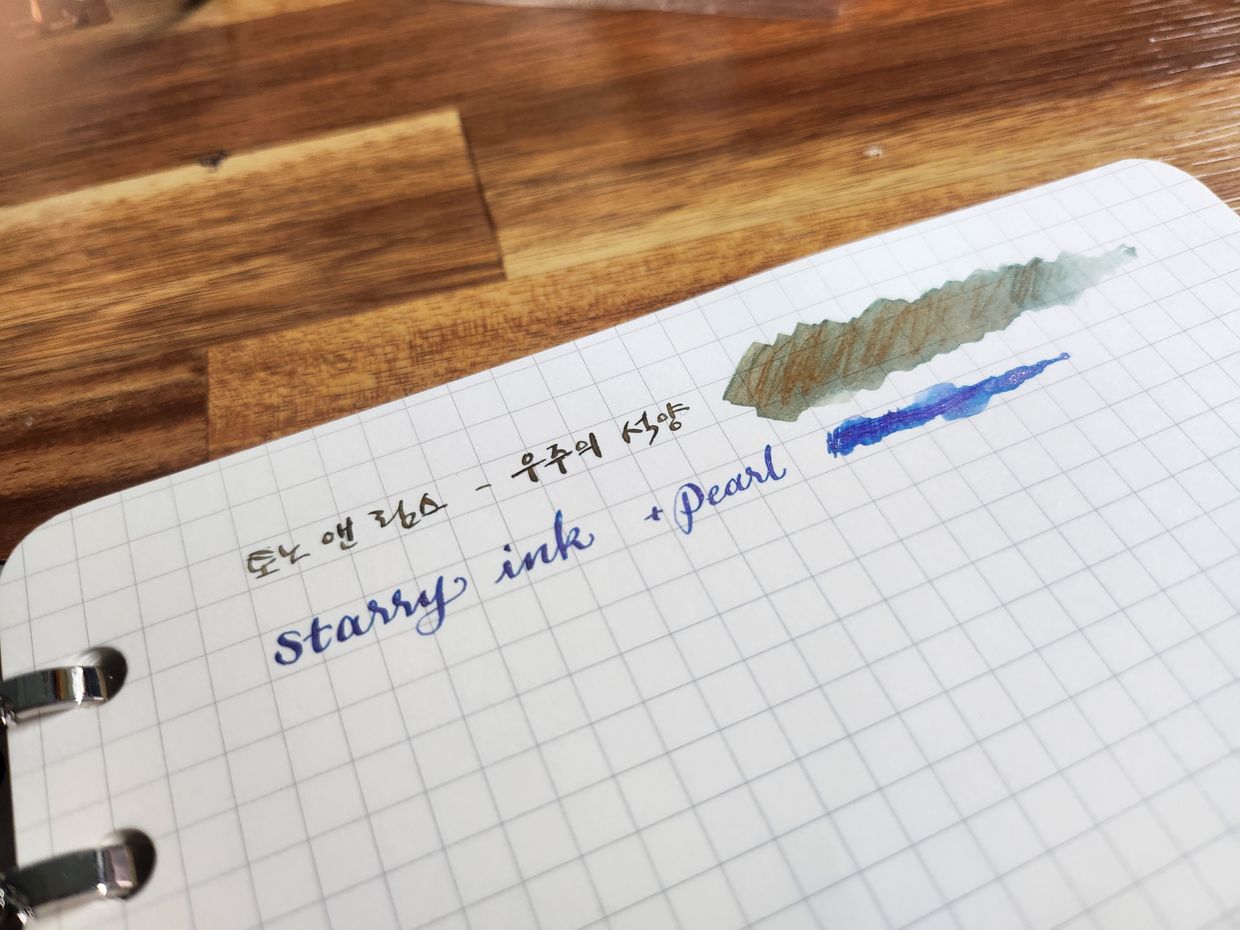 토노 앤 림스 - 우주의 석양
starry ink + pearl